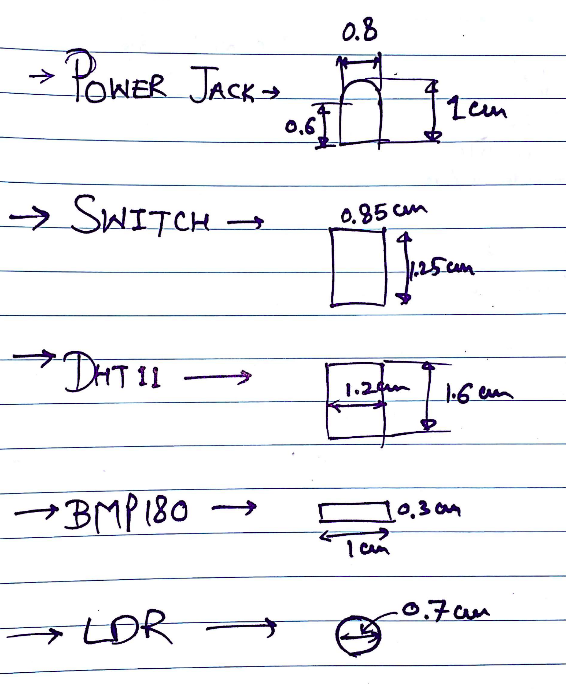 0.8
→ POWER JACK →
0.6
1 cm
→ SWITCH →
0.85 cm
1.25 cm
→ DHT 11 →
1.2 cm
1.6 cm
→ BMP180 →
0.3 cm
1 cm
→ LDR →
0.7 cm